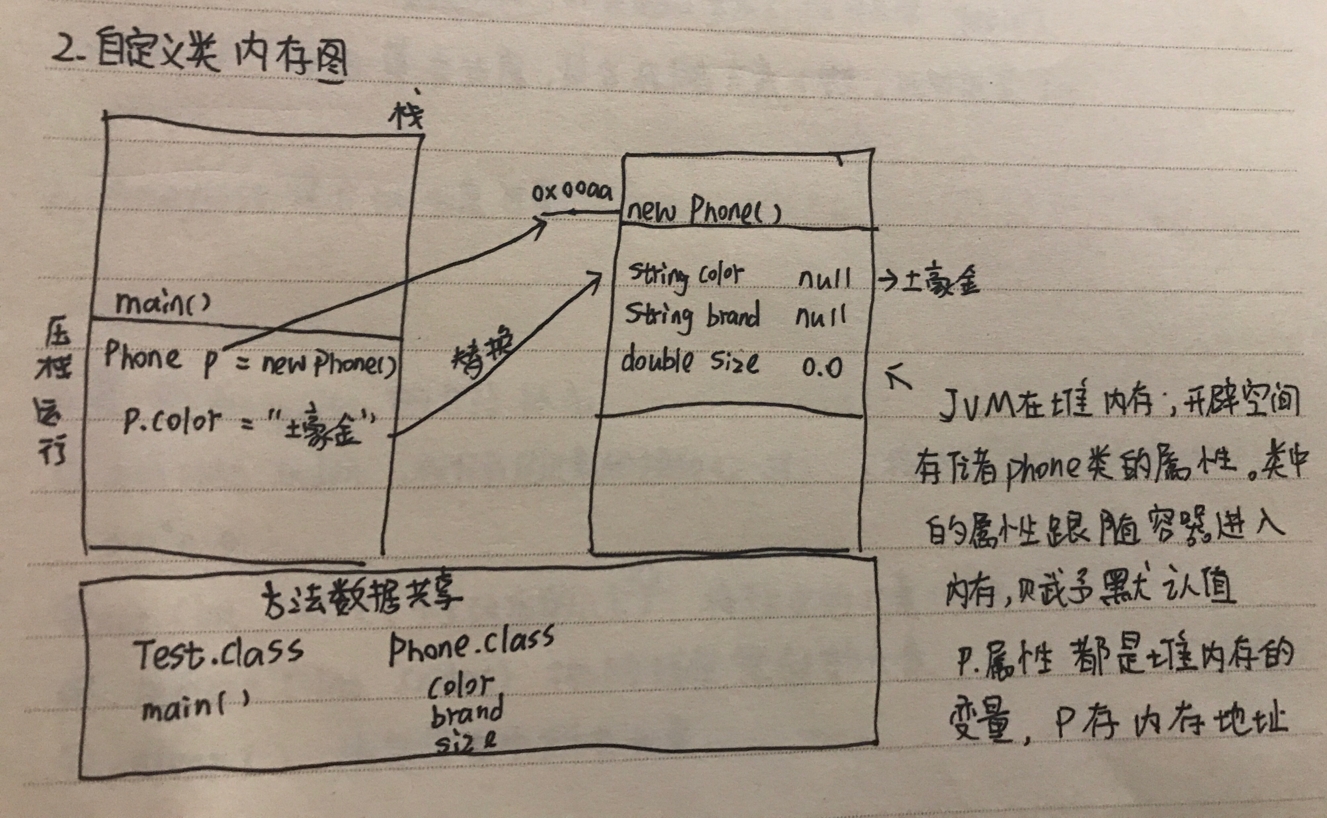 2. 自定义类 内存图
栈
0x00aa
new Phone()
string color null →土豪金
String brand null
double size 0.0
main()
Phone p = new Phone()
P.color = "土豪金"
替换
压栈运行
JVM在堆内存;开辟空间
存储者phone类的属性。类中
的属性跟随容器进入
内存,赋予默认值
P.属性 都是堆内存的
变量, P存内存地址
方法数据共享
Test.class Phone.class
main() color
brand
size